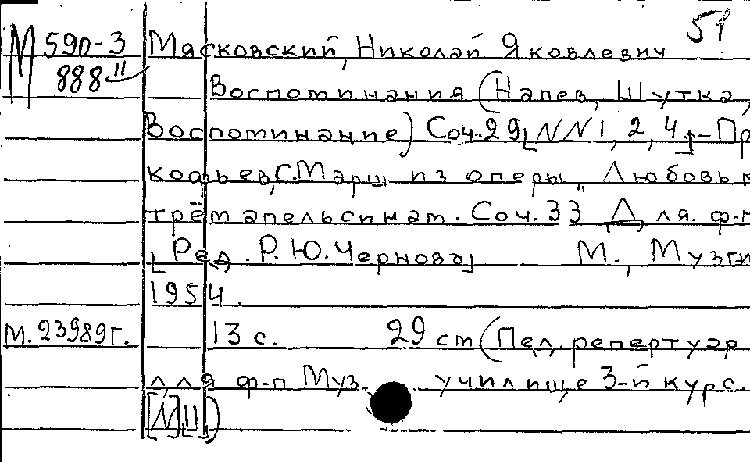 51
М 590-3 Мясковский, Николай Яковлевич
888 II Воспоминания (Напев, Шутка,
Воспоминание) Соч. 29 [NN 1, 2, 4]. - Про
кофьев, С. Марш из оперы „Любовь к
трём апельсинам. Соч. 33 Для ф-п
[Ред. Р.Ю. Чернова] М., Музги
1954.
М. 23989г. 13 с. 29 cm (Пед. репертуар
для ф-п Муз. училище 3-й курс.
[N] [II])